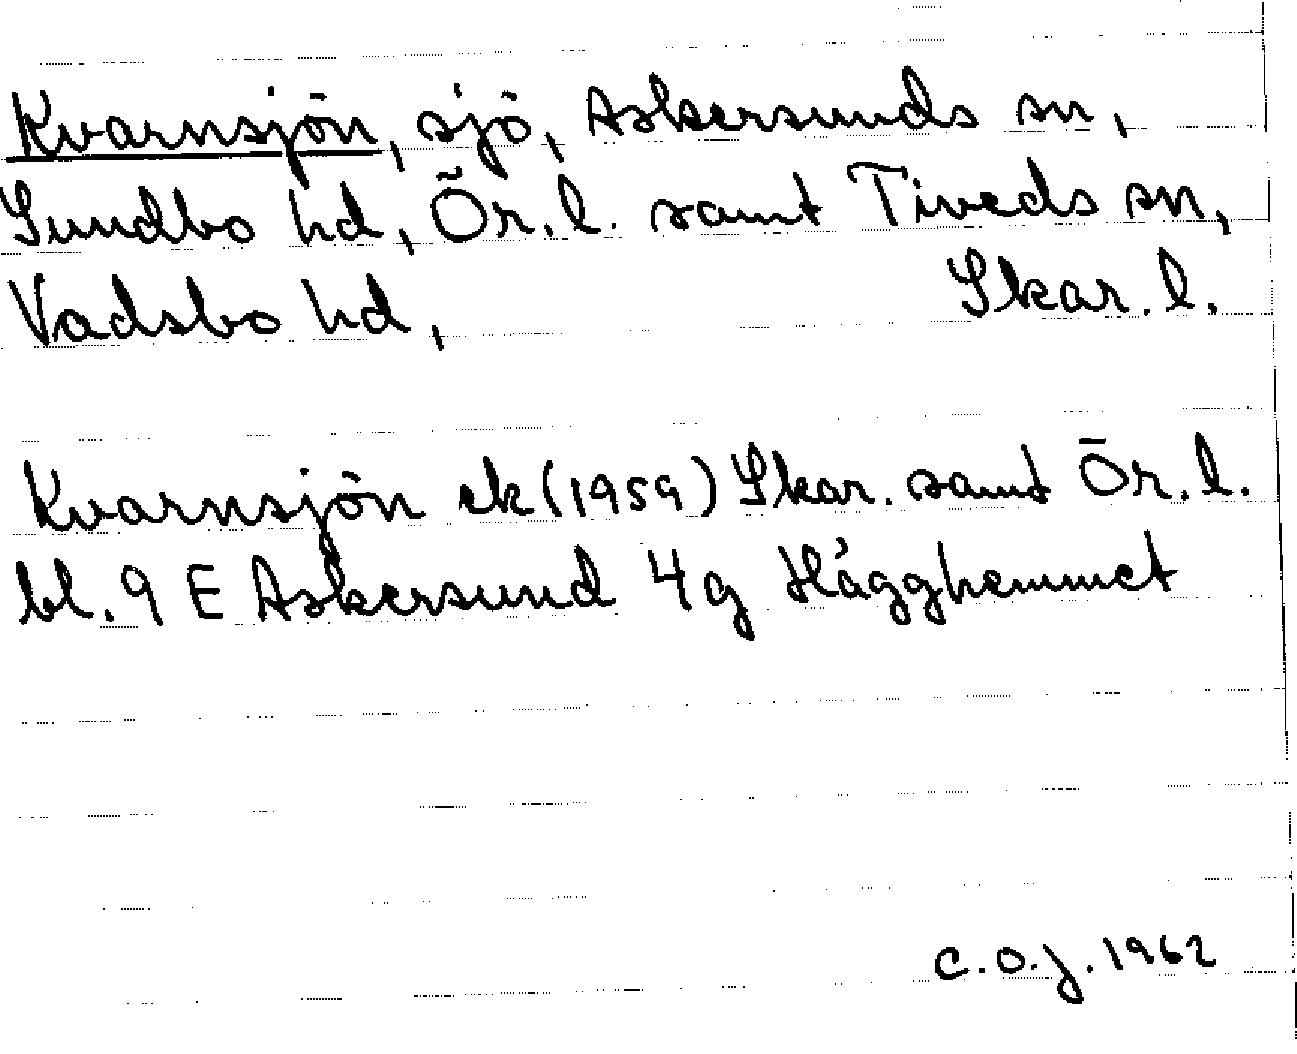 Kvarnsjön, sjö, Askersunds sn,
Sundbo hd, Ör. l. samt Tiveds sn,
Vadsbo hd, Skar. l.
Kvarnsjön ek (1959) Skar. samt Ör. l.
bl. 9 E Askersund 4g Hägghemmet
C.O.J. 1962